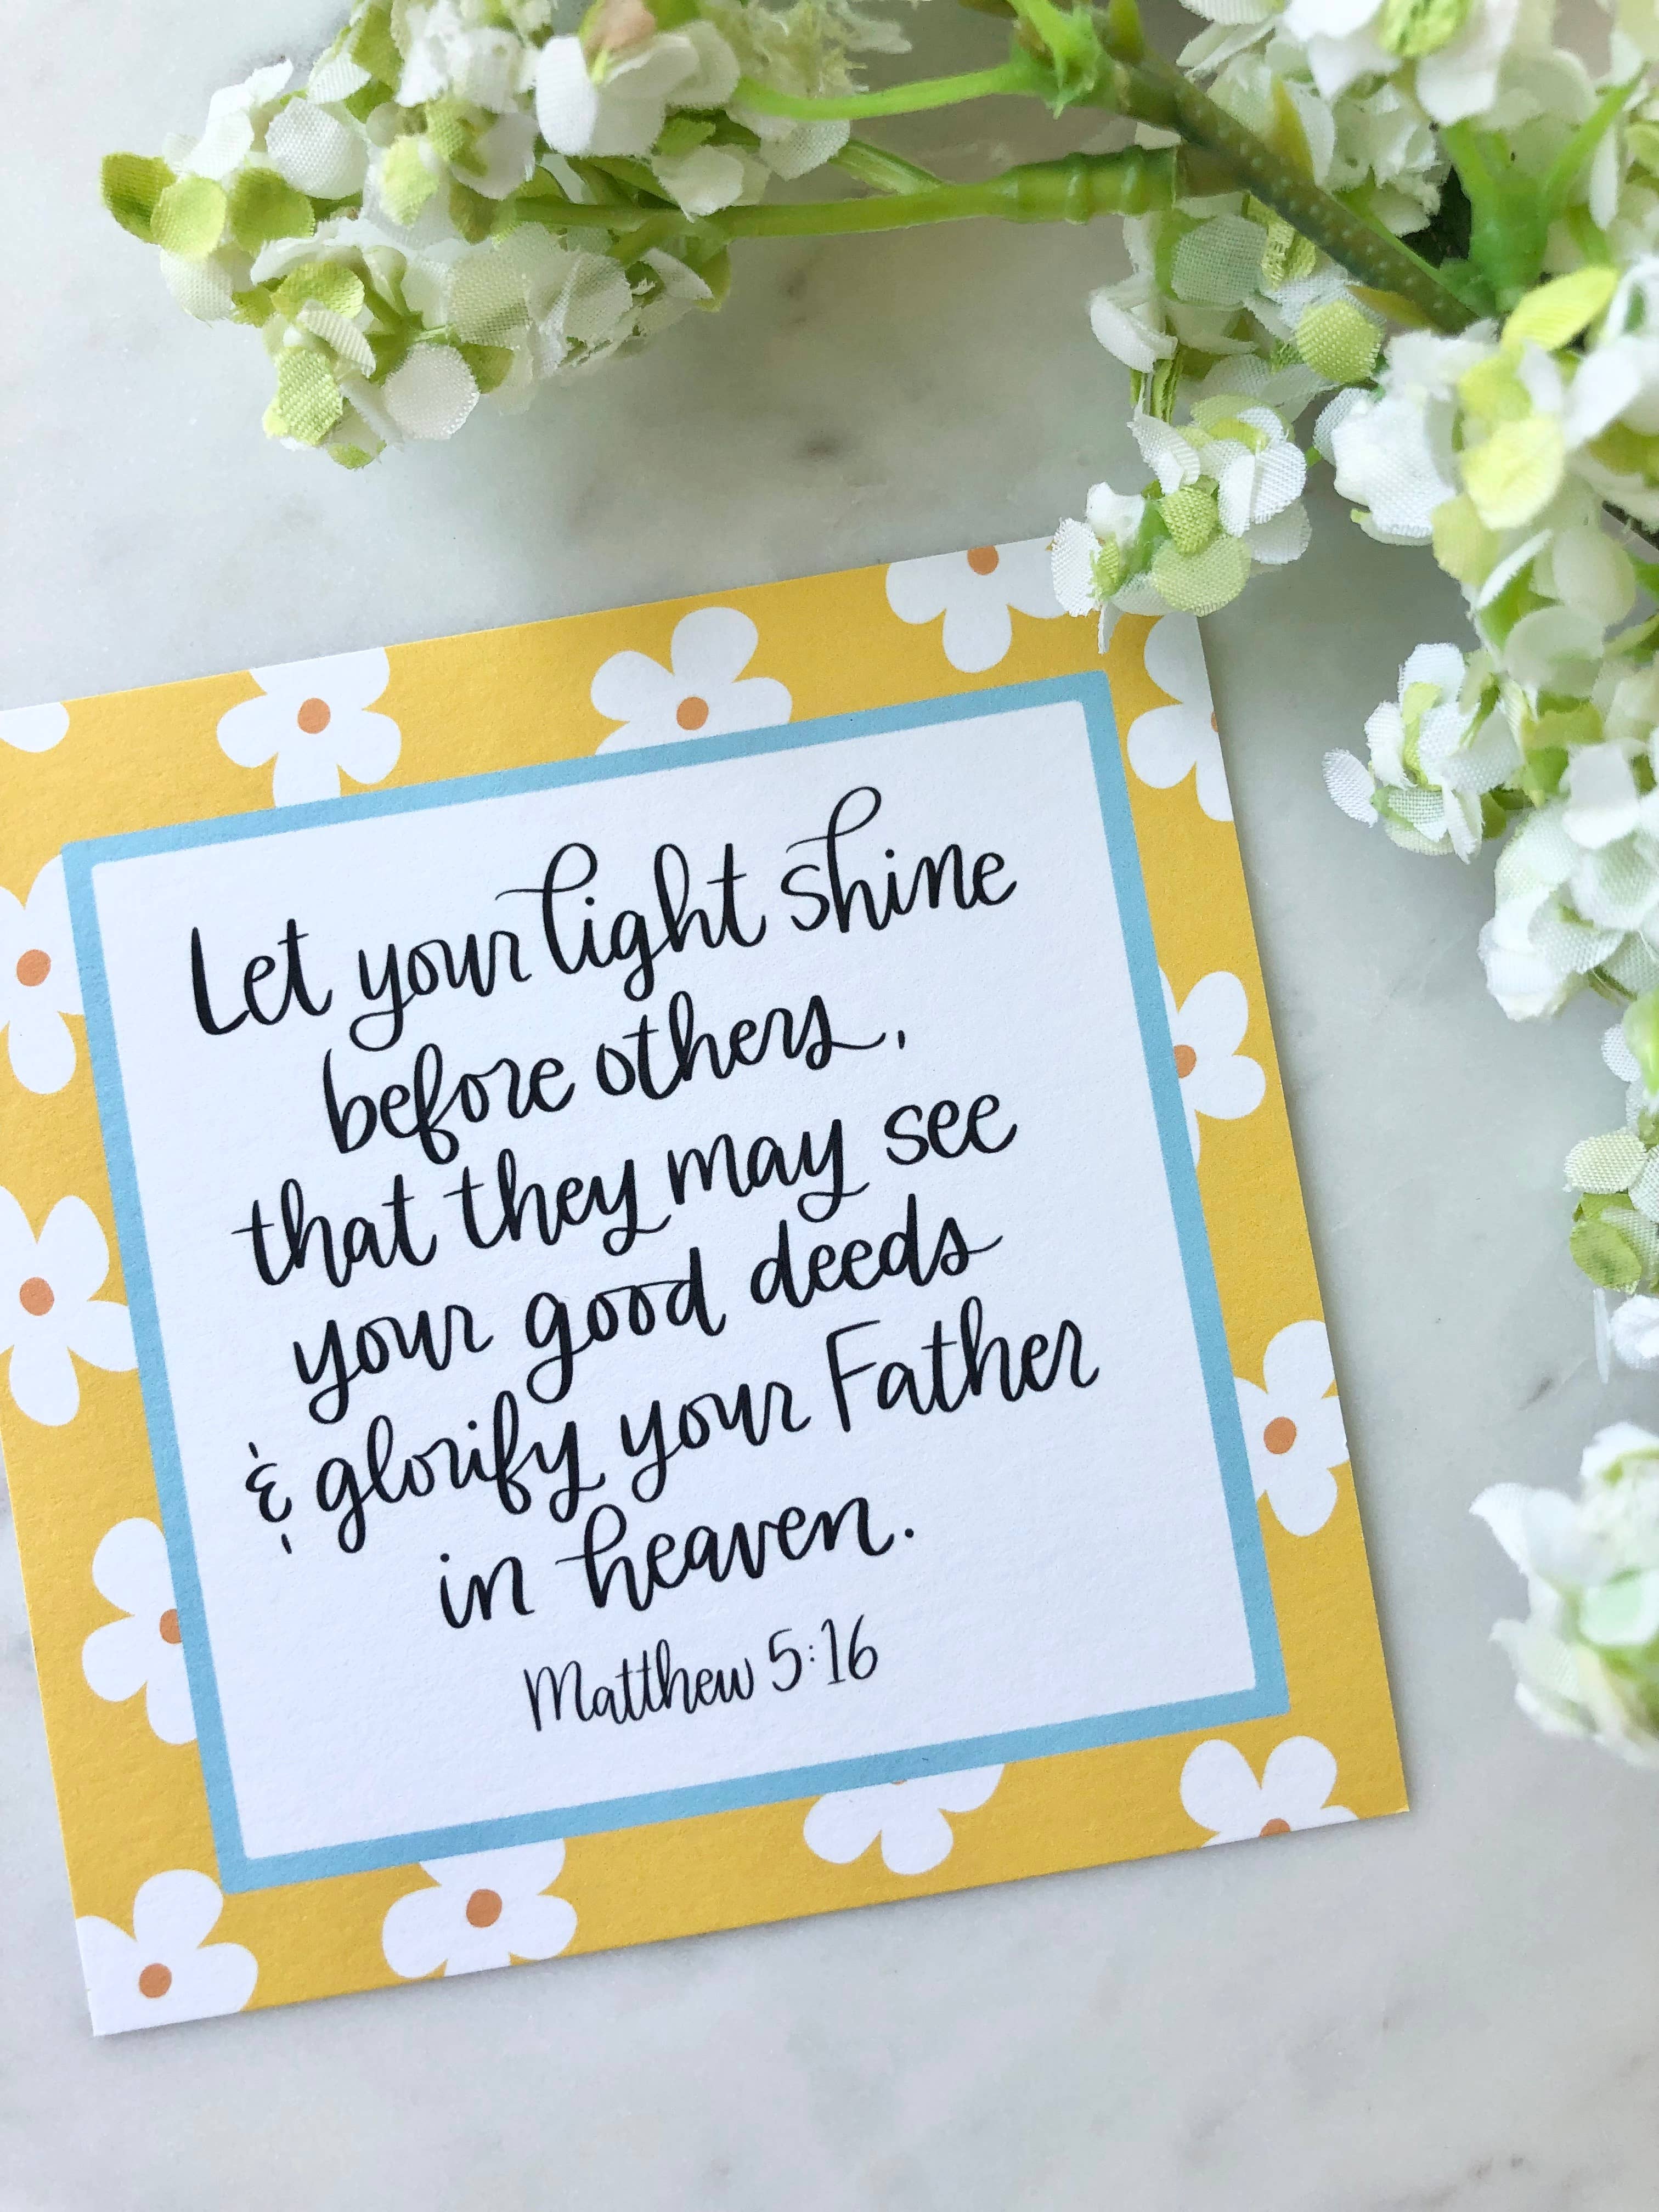 Let your light shine
before others,
that they may see
your good deeds
& glorify your Father
in heaven.
Matthew 5:16